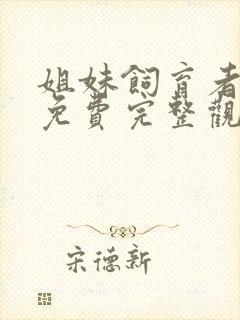 姐妹飼育者
免費完整觀
宋德新